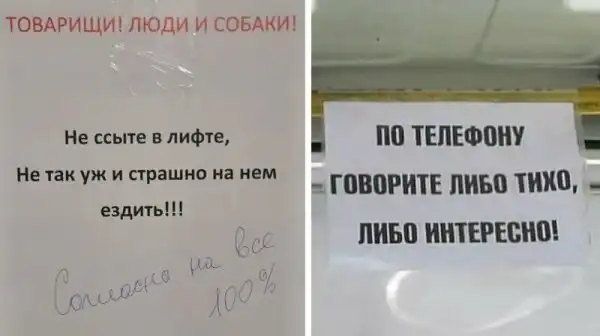 ТОВАРИЩИ! ЛЮДИ И СОБАКИ!
Не ссыте в лифте,
Не так уж и страшно на нем
ездить!!!
Согласна на все
100%
ПО ТЕЛЕФОНУ
ГОВОРИТЕ ЛИБО ТИХО,
ЛИБО ИНТЕРЕСНО!